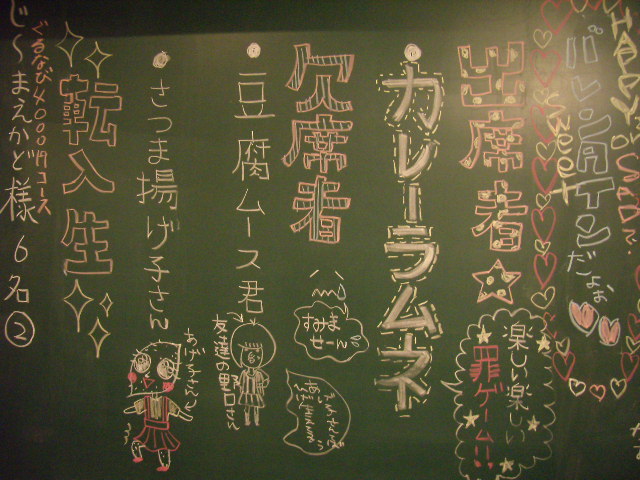 HAPPY
バレンタインだよぉ
Sweet
出席者☆
楽しい楽しい
罪ゲーム!!
・カレーラムネ
欠席者
すみま
せーん
・豆腐ムース君
友達の野口さん
・さつま揚げ子さん
あげ子さん
転入生
ぐるなび4000円コース
じ〜まえかど様 6名②